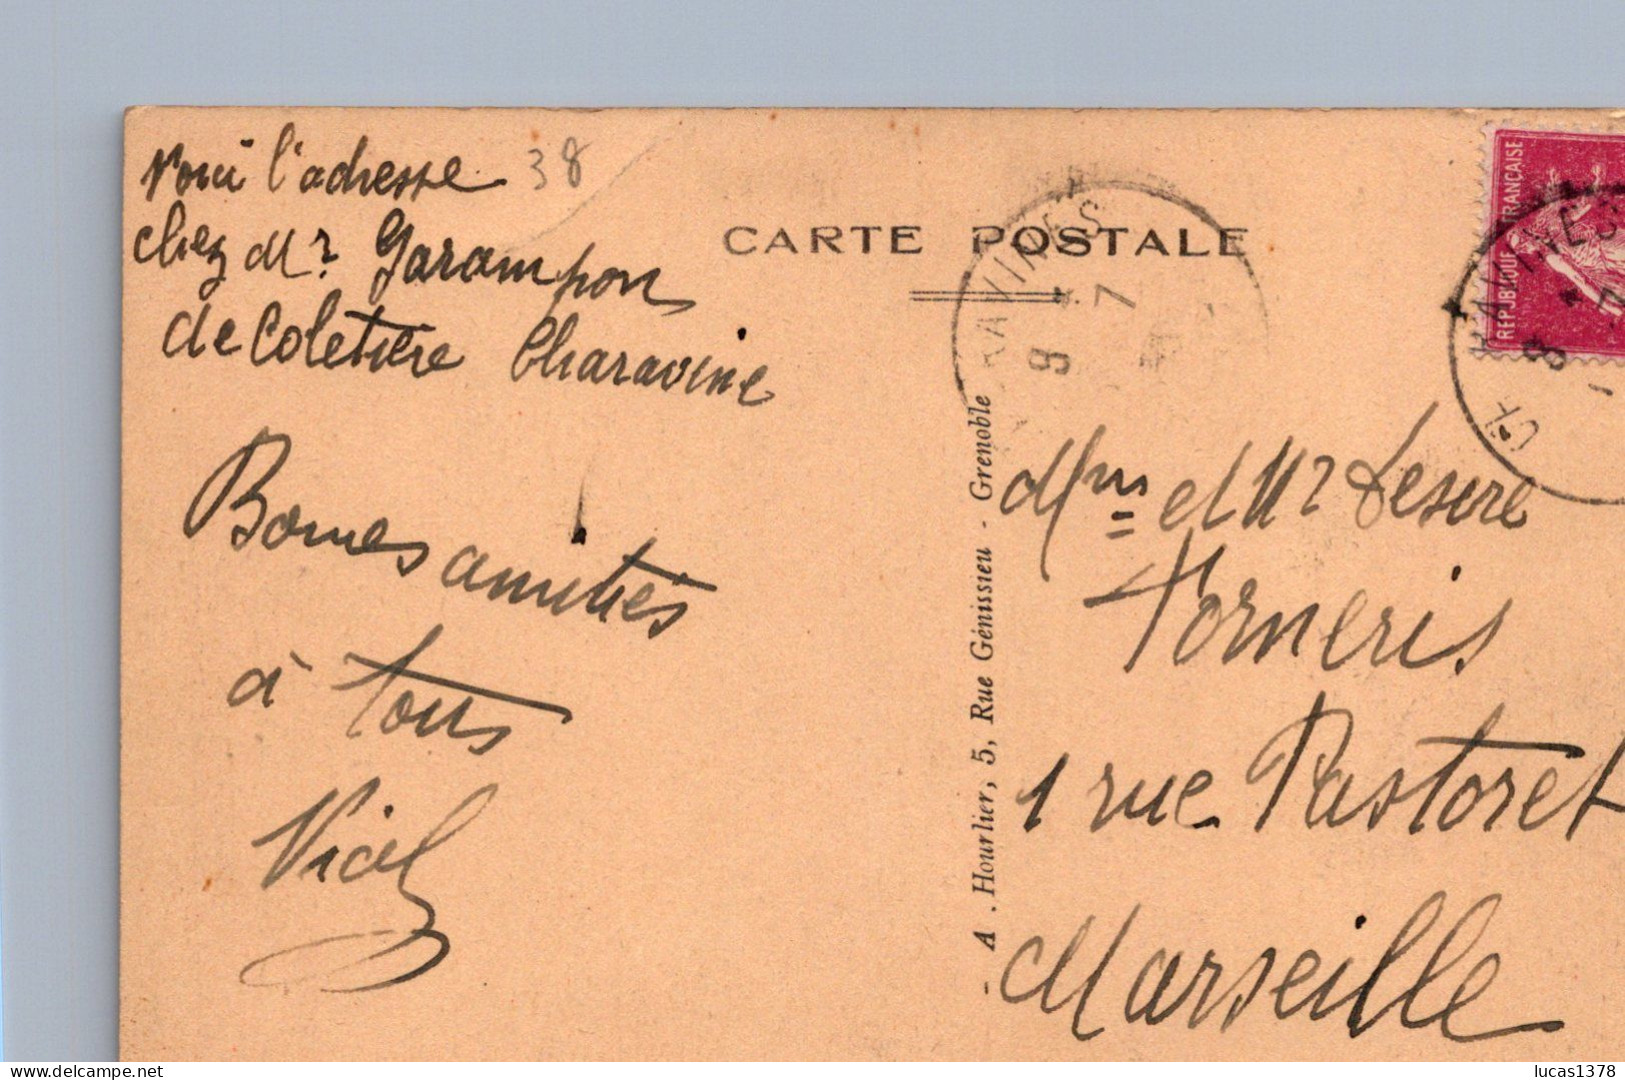 Voici l'adresse 38
chez Mr Garampon
de Coletière Charavine
Bonnes amitiés
à tous
Vial
CARTE POSTALE
A. Hourlier, 5, Rue Génissieu - Grenoble
RAVINES
9
7
REPUBLIQUE FRANÇAISE
CH AVINES
8
7
Mme et Mr Desire
Forneris
1 rue Pastoret
Marseille
delcampe.net
lucas1378